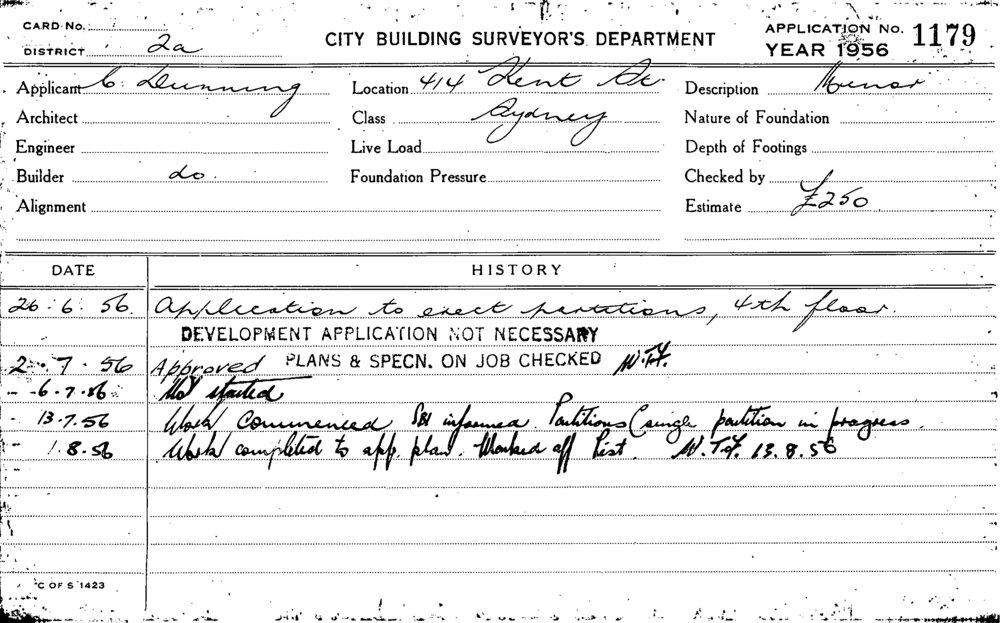 CARD No.
DISTRICT 2a
CITY BUILDING SURVEYOR'S DEPARTMENT
APPLICATION No. 1179
YEAR 1956
Applicant C. Dunning Location 414 Kent St. Description Minor
Architect Class Sydney Nature of Foundation
Engineer Live Load Depth of Footings
Builder do. Foundation Pressure Checked by
Alignment Estimate £250
DATE HISTORY
26.6.56. Application to erect partations, 4th floor.
DEVELOPMENT APPLICATION NOT NECESSARY
2.7.56 Approved PLANS & SPECN. ON JOB CHECKED W.T.F.
6.7.56 Not started
13.7.56 Work commenced informed. Partitions (single partition in progress.
1.8.56 Work completed to app. plan. Marked off list. W.T.F. 13.8.56
C OF S 1423